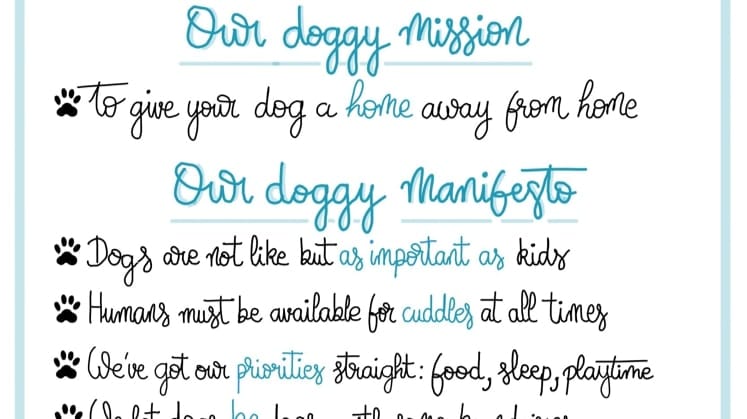 Our doggy Mission
To give your dog a home away from home
Our doggy Manifesto
Dogs are not like but as important as kids
Humans must be available for cuddles at all times
We've got our priorities straight: food, sleep, playtime